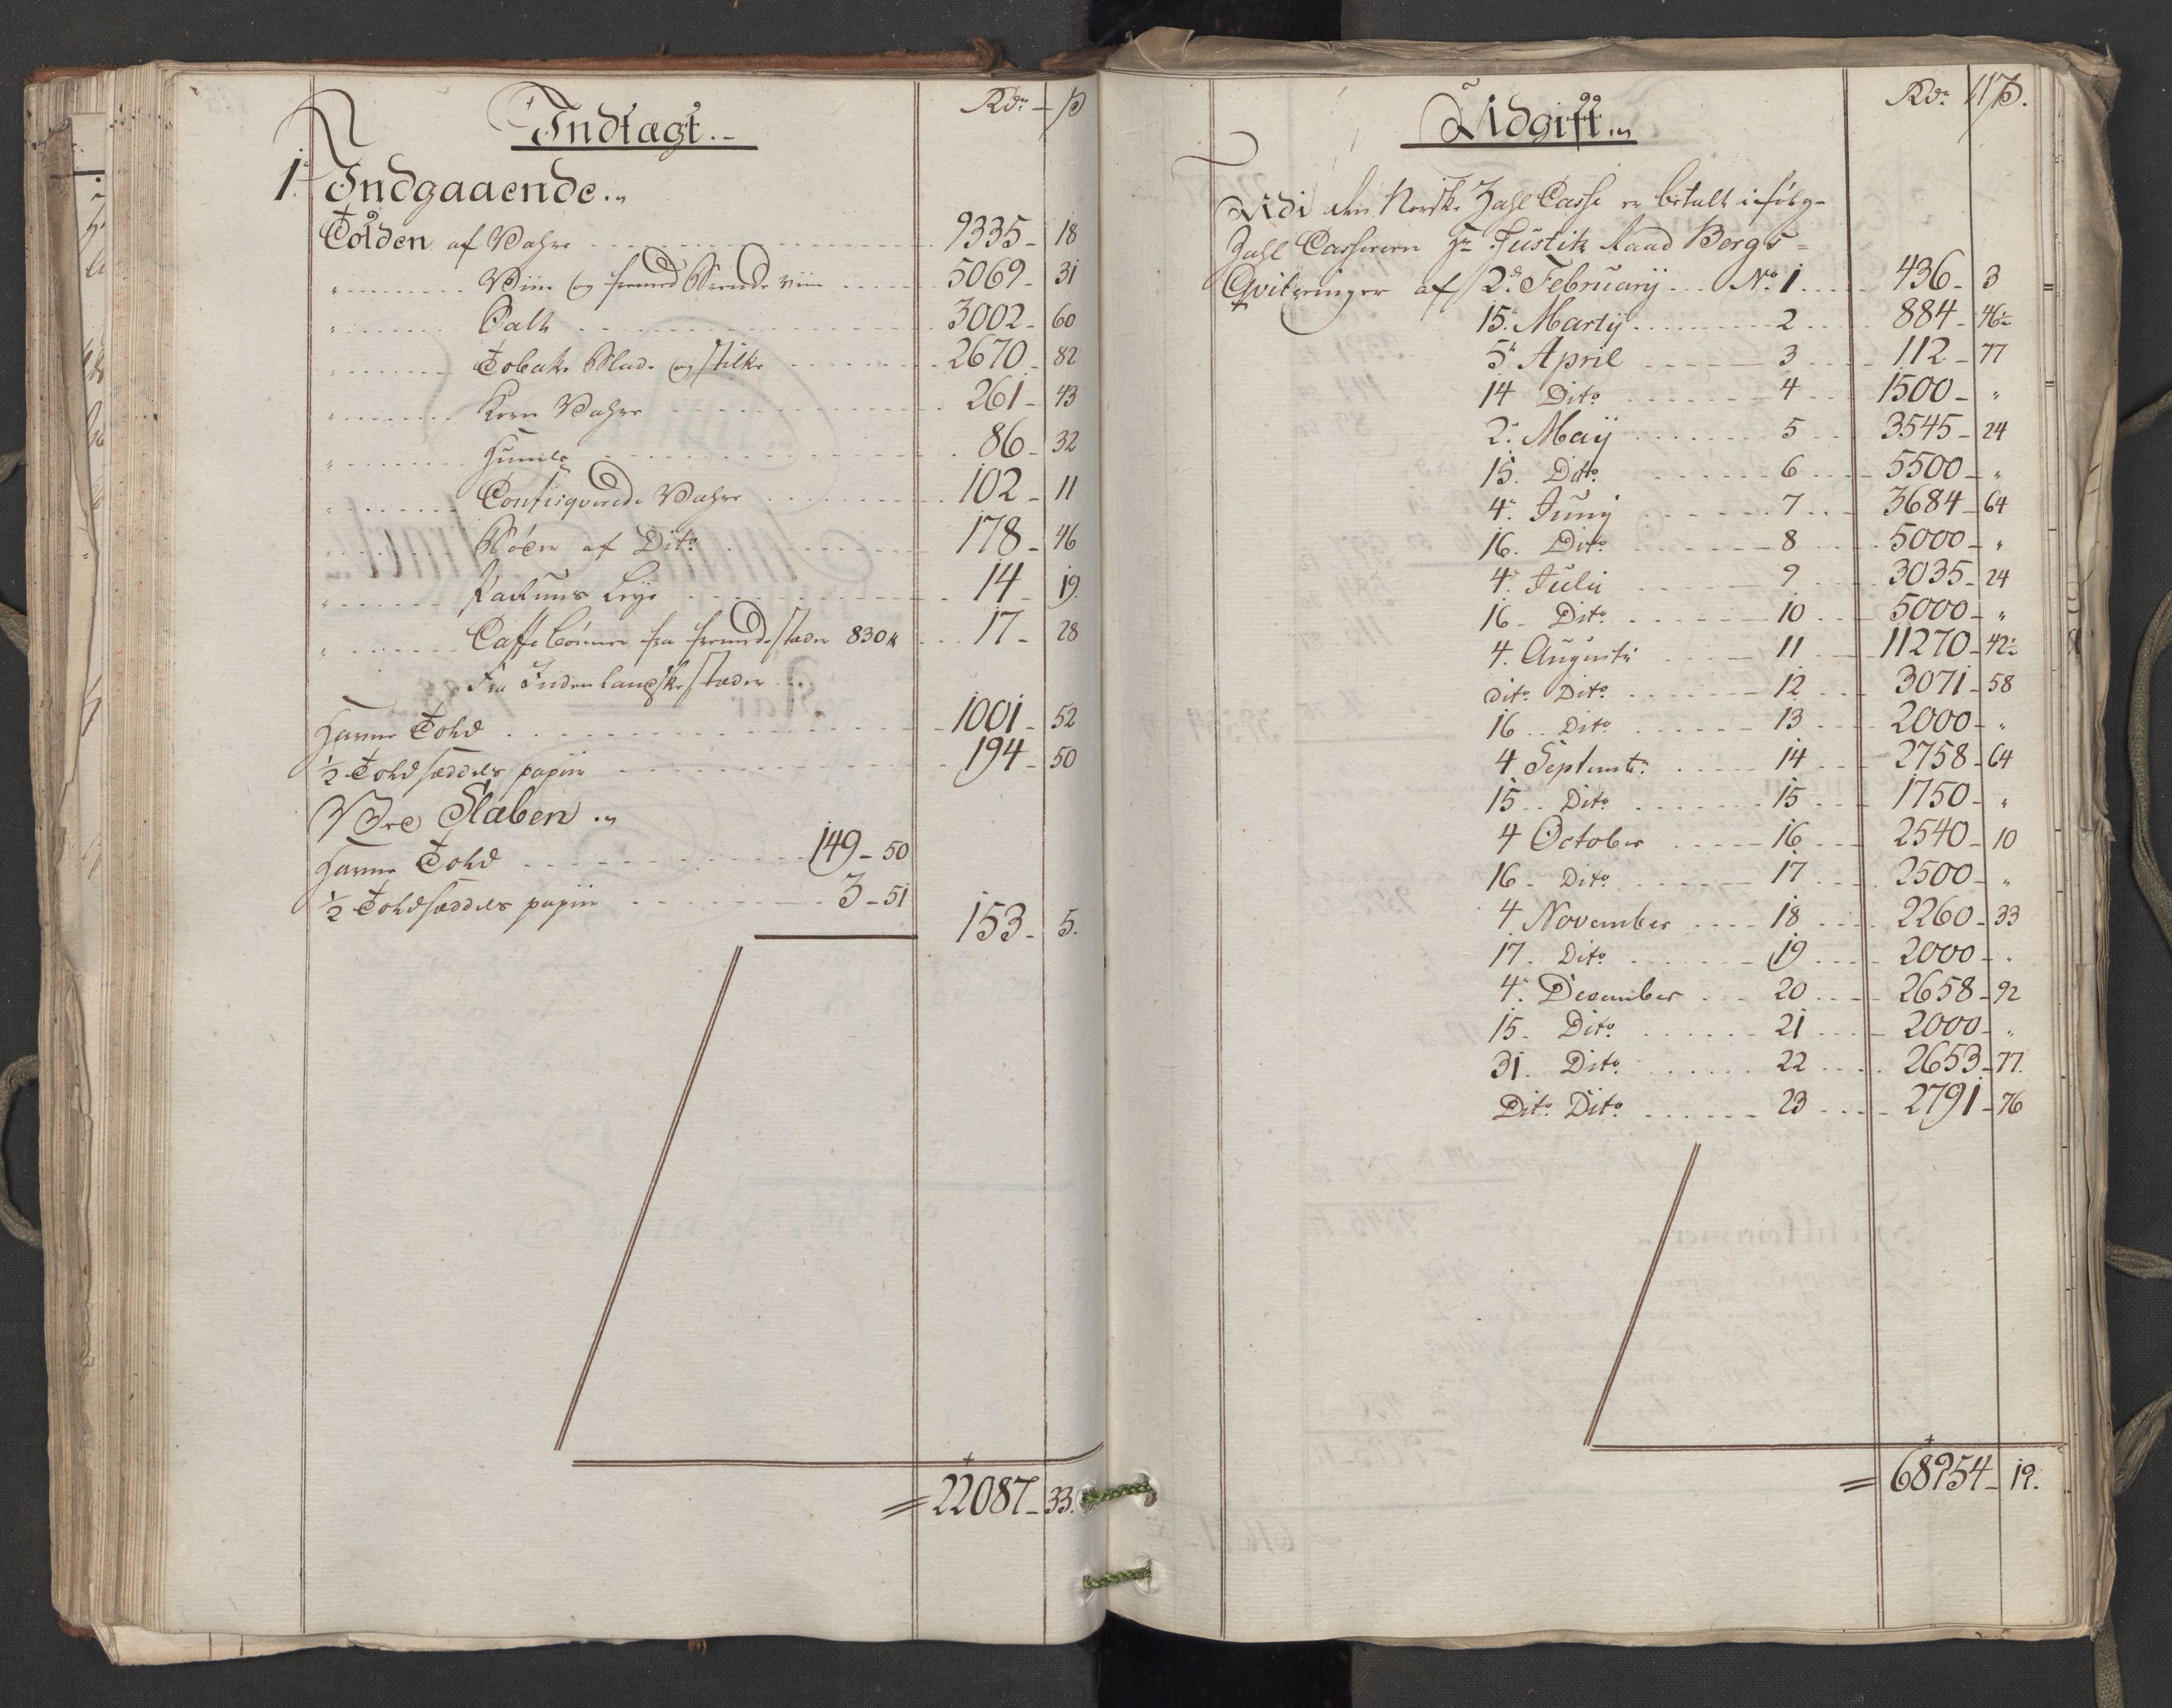 Indtægt.
Rdr – ß
1. Indgaaende.
Tolden af Vahre 9335 – 18
" Viin og fremed Brende viin 5069 – 31
" Salt 3002 – 60
" Tobaks Blade og Stilke 2670 – 82
" Korn Vahre 261 – 43
" Humle 86 – 32
" Confisquerede Vahre 102 – 11
" Bøder af Dito 178 – 46
" Pakhuus Leye 14 – 19.
" Caffe bønner fra fremede stæder 830 ℔ 17 – 28
Fra Indenlandske stæder
Havne Told 1001 – 52
½ Toldseddels papiir 194 – 50
Staben
Havne Told 149 – 50
½ Toldseddels papiir 3 – 51
153 – 5.
= 22087 – 33.
117
Udgift.
Rdr ß.
Udi den Norske Zahl Casse er betalt i følg-
Zahl Casserern Hr Justitz Raad Bergs =
Qvitteringer af 2d February No 1 436 – 3
15. Marty 2 884 – 46½
5. April 3 112 – 77
14 Dito 4 1500 – "
2. May 5 3545 – 24
15. Dito 6 5500 – "
4. Juny 7 3684 – 64
16. Dito 8 5000 – "
4. July 9 3035 – 24
16 – Dito 10 5000 – "
4. Augusti 11 11270 – 42½
dito Dito 12 3071 – 58
16 Dito 13 2000 – "
4 Septembr: 14 2758 – 64
15 Dito 15 1750 – "
4 October 16 2540 – 10
16 – Dito 17 2500 – "
4 November 18 2260 – 33
17. Dito 19 2000 – "
4. December 20 2658 – 92
15. Dito 21 2000 – "
31. Dito 22 2653 – 77.
Dito Dito 23 2791 – 76
= 68954 – 19.